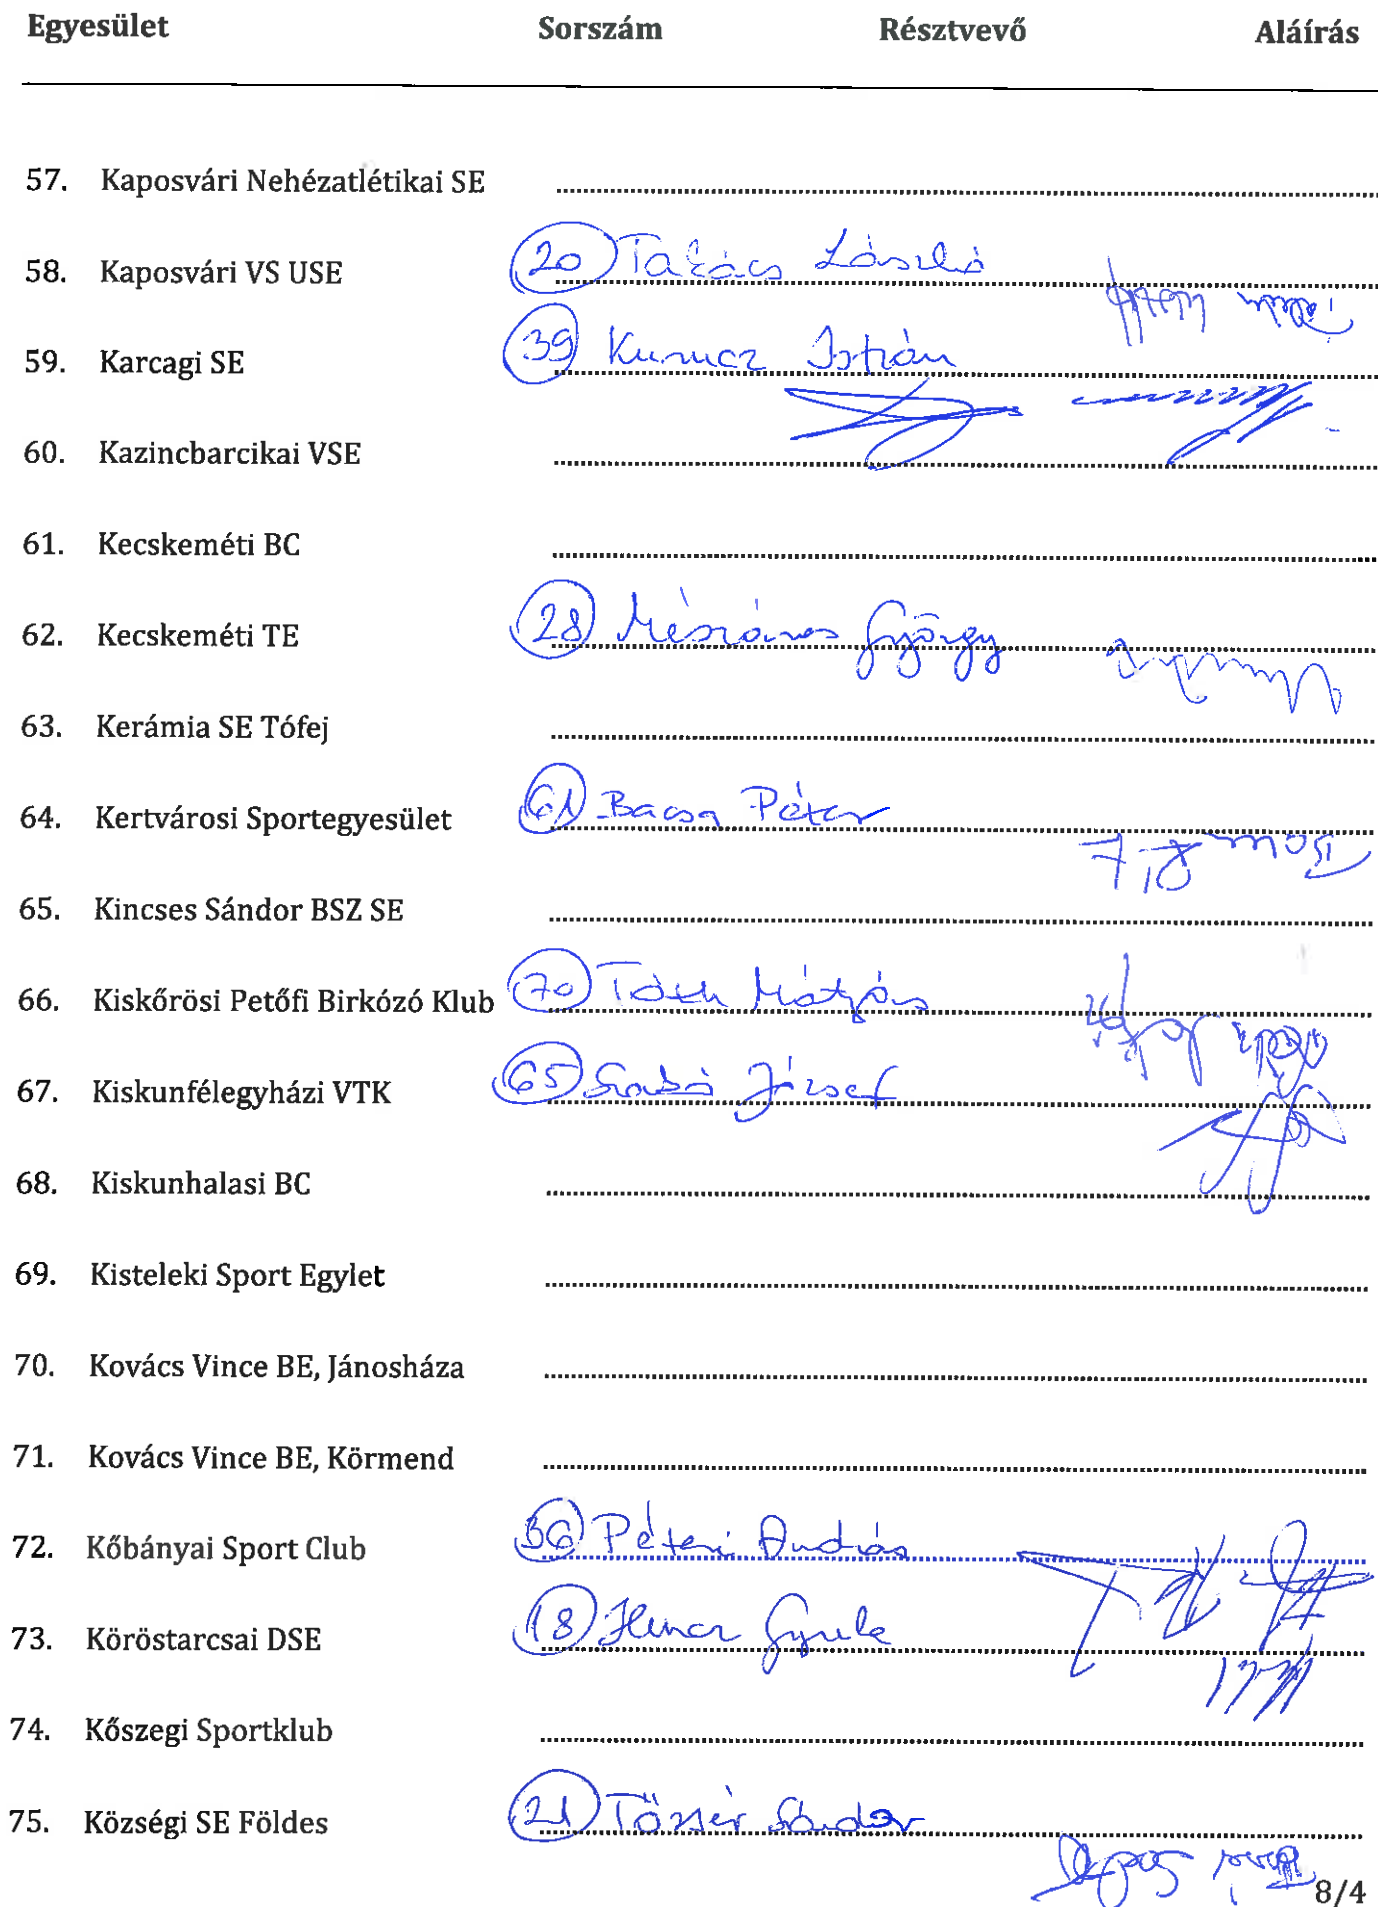 Egyesület Sorszám Résztvevő Aláírás
57. Kaposvári Nehézatlétikai SE
58. Kaposvári VS USE 20 Takács László
59. Karcagi SE 39 Kurucz István
60. Kazincbarcikai VSE
61. Kecskeméti BC
62. Kecskeméti TE 28 Mészáros György
63. Kerámia SE Tófej
64. Kertvárosi Sportegyesület 61 Bacsa Péter
65. Kincses Sándor BSZ SE
66. Kiskőrösi Petőfi Birkózó Klub 70 Tóth Mátyás
67. Kiskunfélegyházi VTK 65 Szabó József
68. Kiskunhalasi BC
69. Kisteleki Sport Egylet
70. Kovács Vince BE, Jánosháza
71. Kovács Vince BE, Körmend
72. Kőbányai Sport Club 36 Péteri András
73. Köröstarcsai DSE 18 Gyula
74. Kőszegi Sportklub
75. Községi SE Földes 21 Tőzsér Sándor
8/4